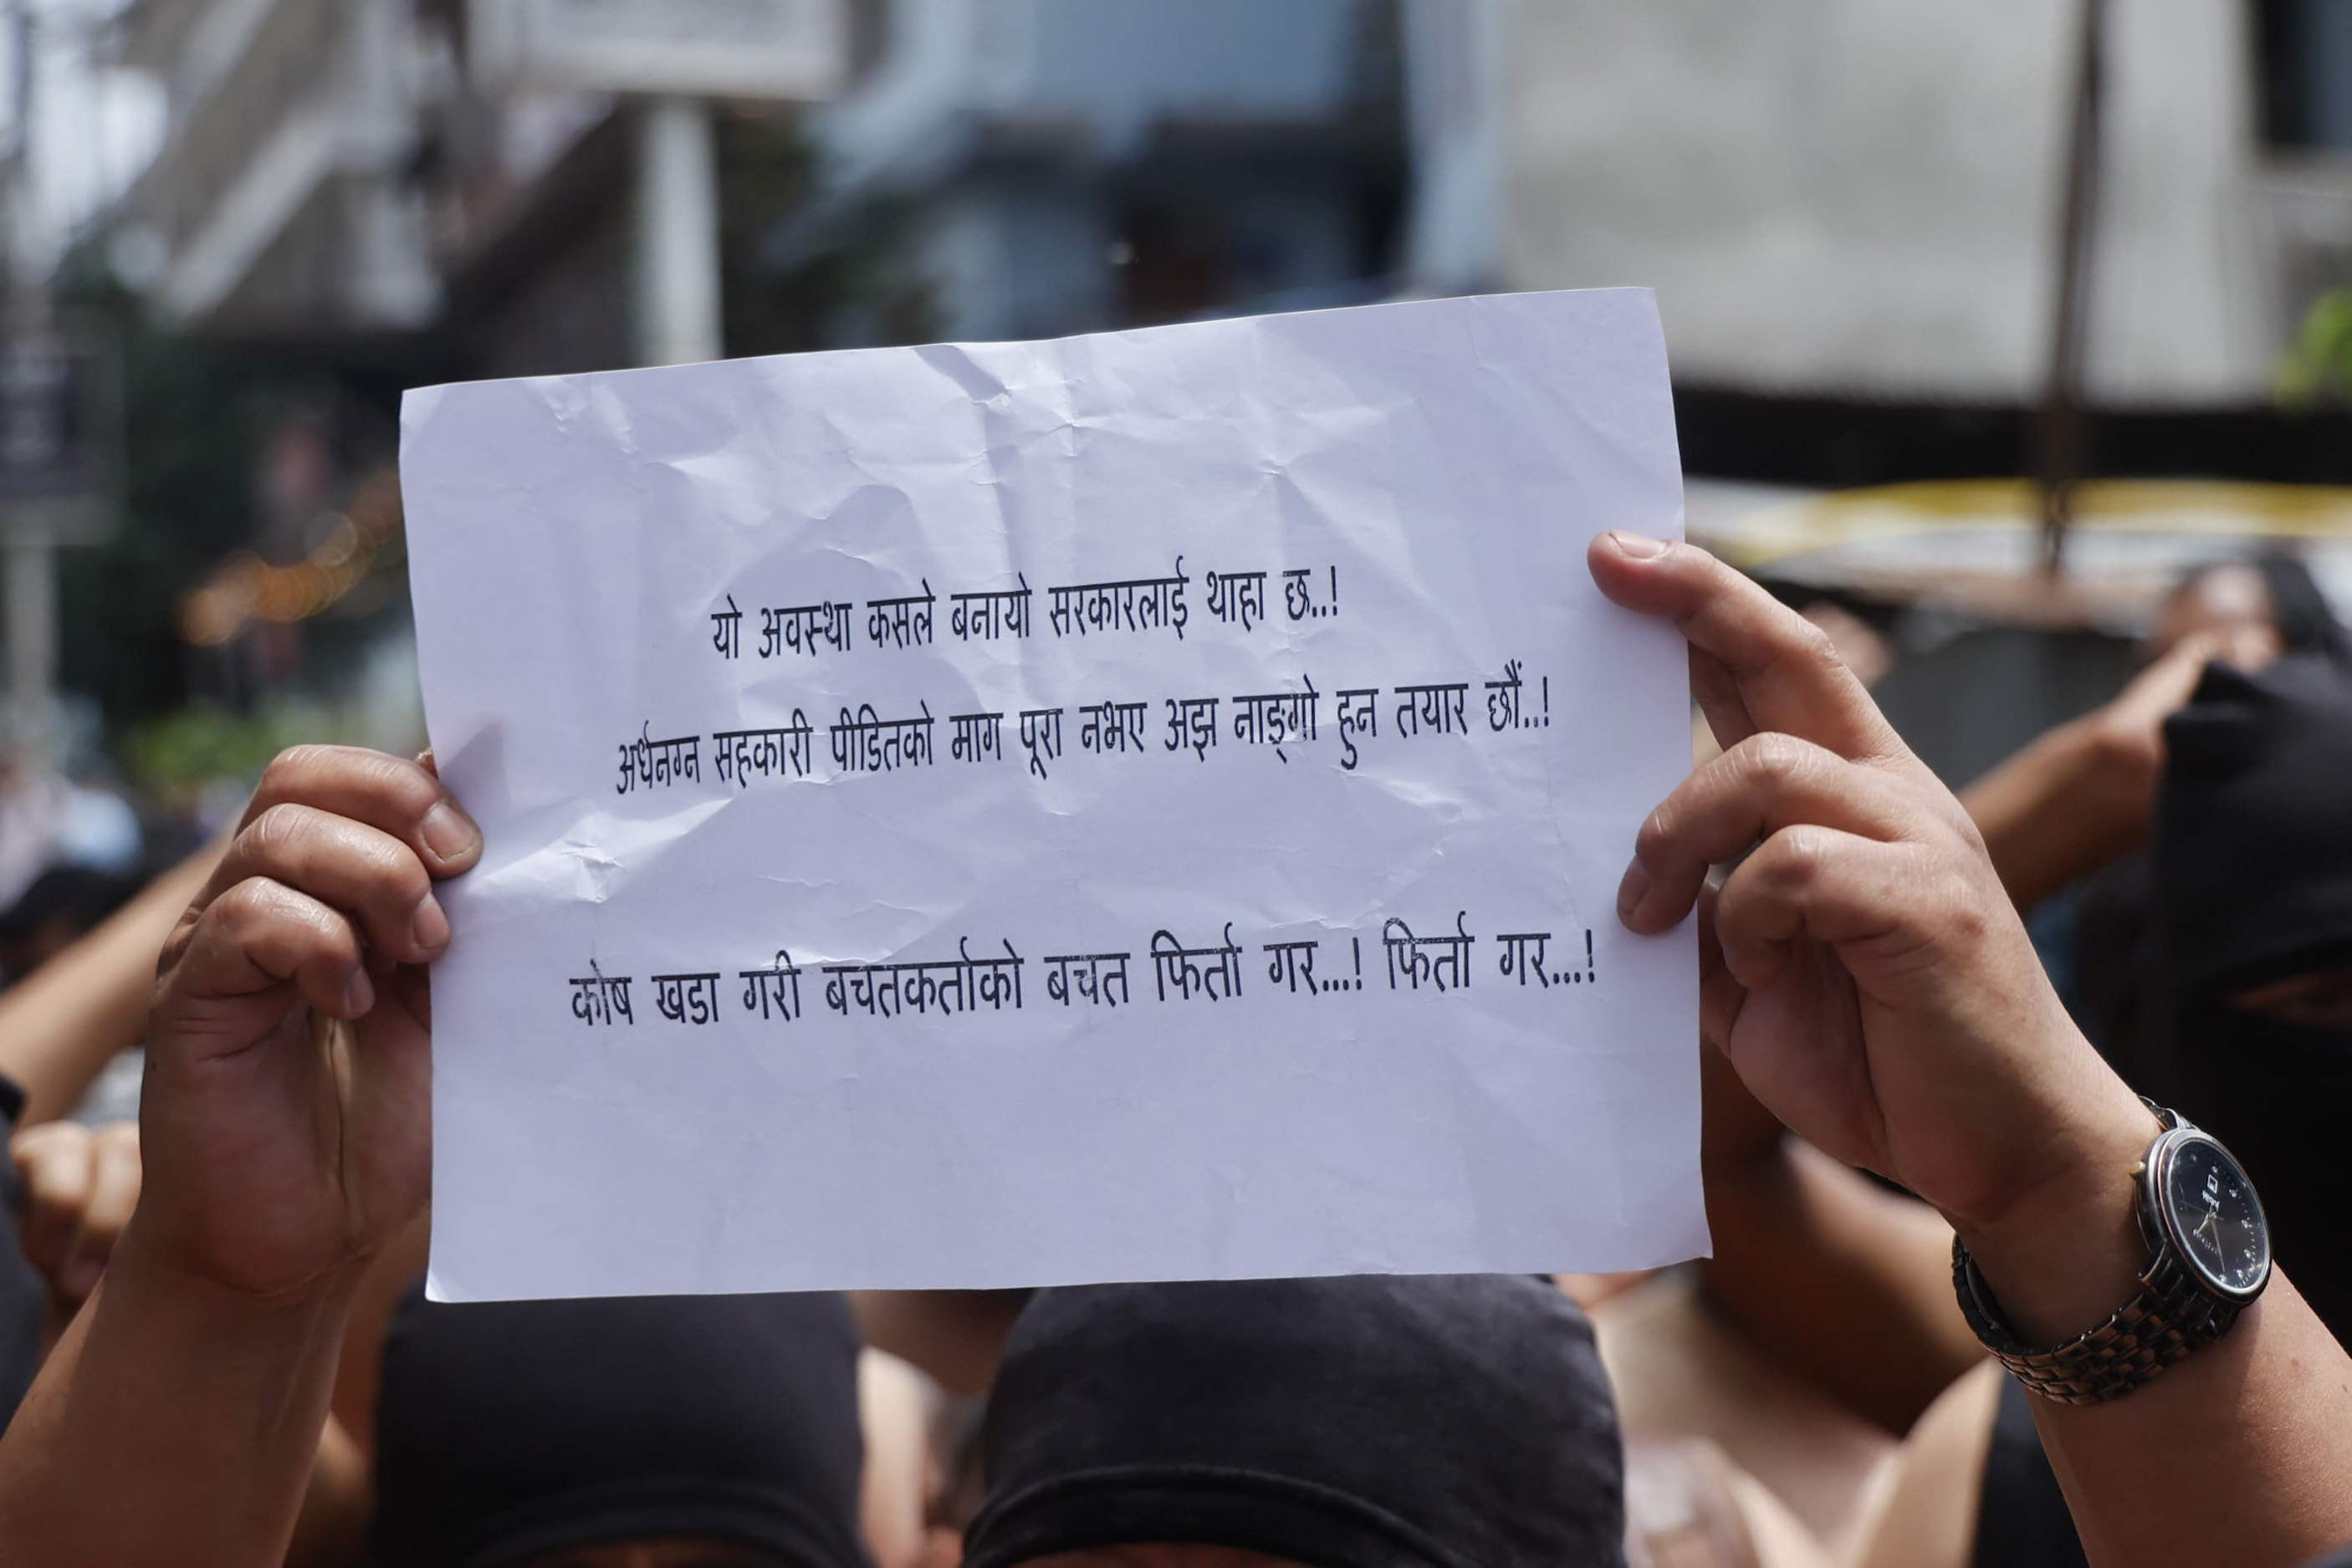 यो अवस्था कसले बनायो सरकारलाई थाहा छ..!
अर्धनग्न सहकारी पीडितको माग पूरा नभए अझ नाङ्गो हुन तयार छौं..!
कोष खडा गरी बचतकर्ताको बचत फिर्ता गर...! फिर्ता गर...!